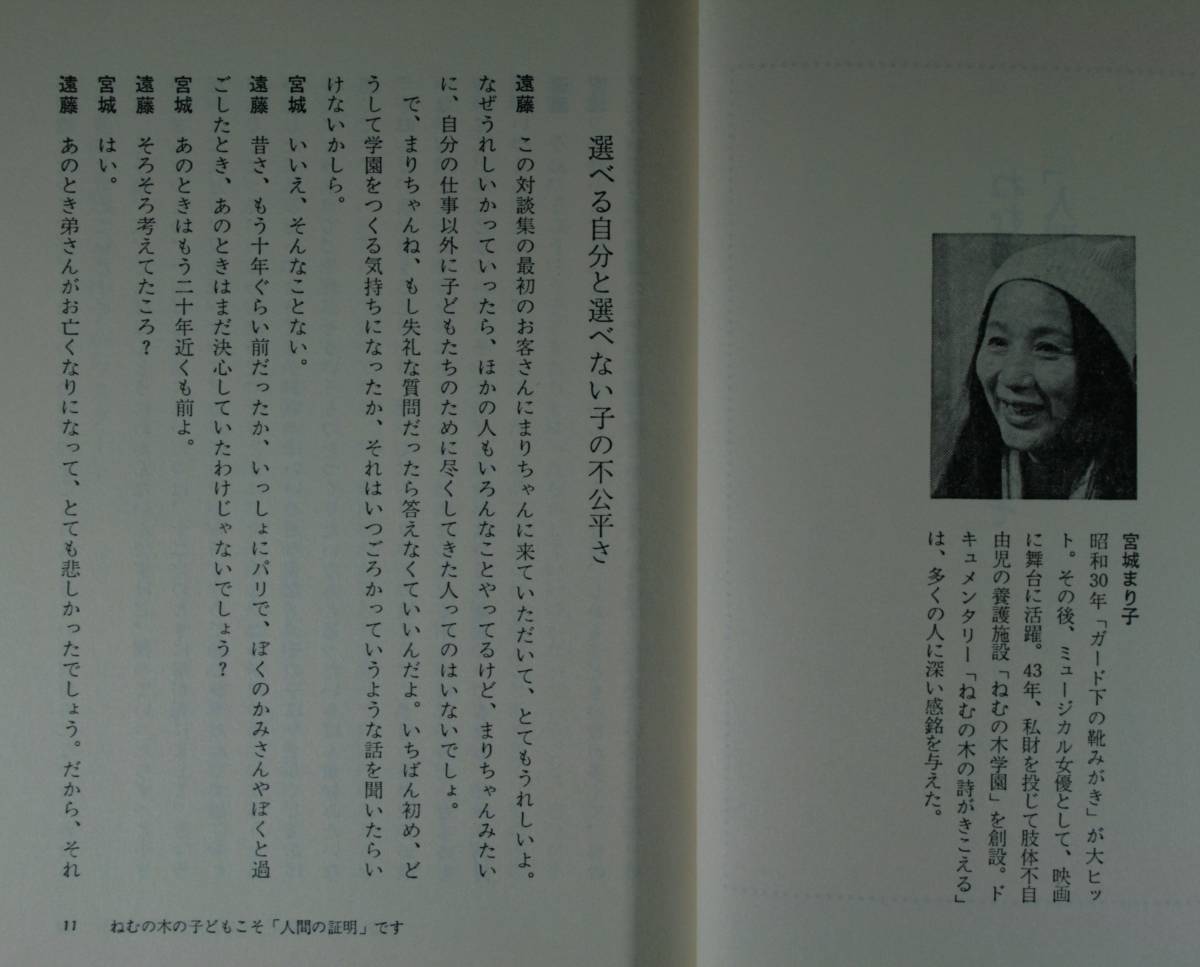 宮城まり子
昭和30年「ガード下の靴みがき」が大ヒッ
ト。その後、ミュージカル女優として、映画
に舞台に活躍。43年、私財を投じて肢体不自
由児の養護施設「ねむの木学園」を創設。ド
キュメンタリー「ねむの木の詩がきこえる」
は、多くの人に深い感銘を与えた。
選べる自分と選べない子の不公平さ
遠藤　この対談集の最初のお客さんにまりちゃんに来ていただいて、とてもうれしいよ。
なぜうれしいかっていったら、ほかの人もいろんなことやってるけど、まりちゃんみたい
に、自分の仕事以外に子どもたちのために尽くしてきた人ってのはいないでしょ。
　で、まりちゃんね、もし失礼な質問だったら答えなくていいんだよ。いちばん初め、ど
うして学園をつくる気持ちになったか、それはいつごろかっていうような話を聞いたらい
けないかしら。
宮城　いいえ、そんなことない。
遠藤　昔さ、もう十年ぐらい前だったか、いっしょにパリで、ぼくのかみさんやぼくと過
ごしたとき、あのときはまだ決心していたわけじゃないでしょう？
宮城　あのときはもう二十年近くも前よ。
遠藤　そろそろ考えてたころ？
宮城　はい。
遠藤　あのとき弟さんがお亡くなりになって、とても悲しかったでしょう。だから、それ
11　ねむの木の子どもこそ「人間の証明」です